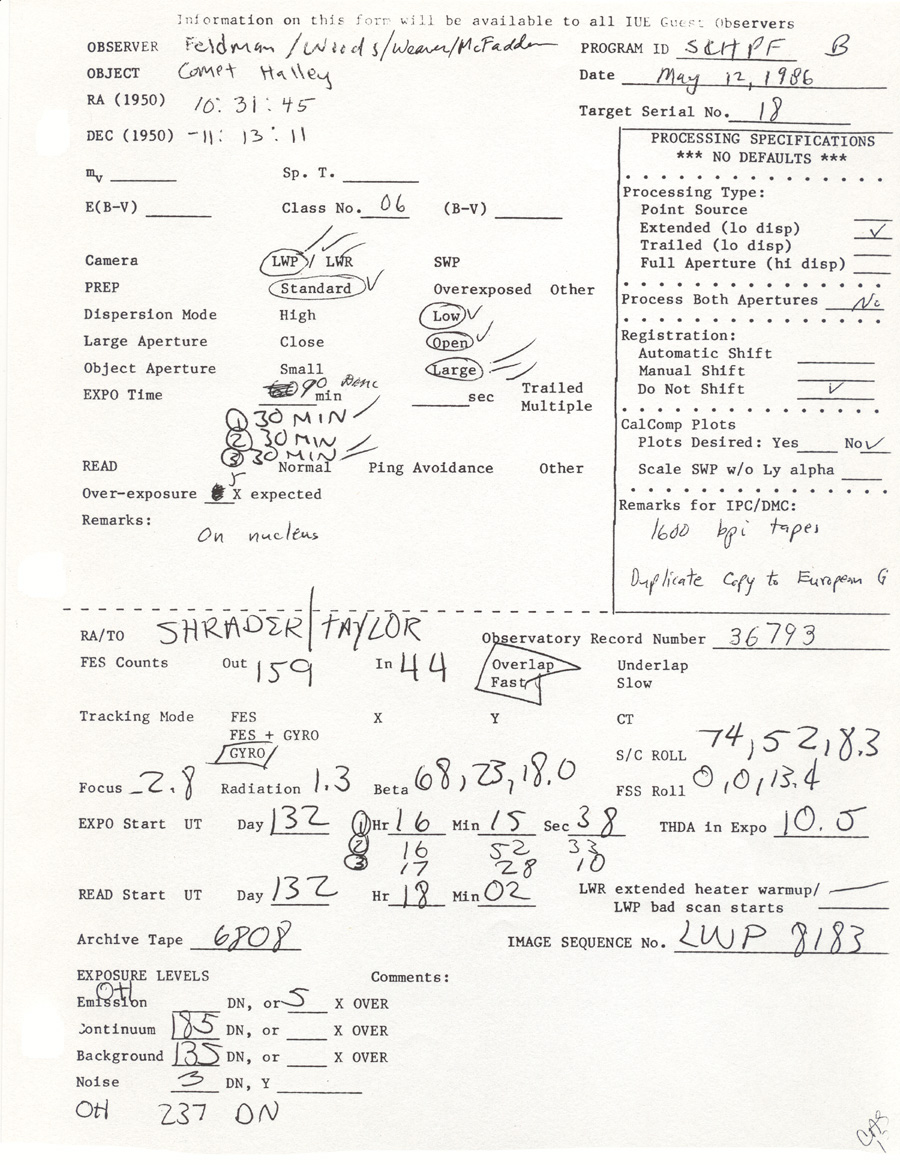 Information on this form will be available to all IUE Guest Observers
OBSERVER Feldman/Woods/Weaver/McFadden PROGRAM ID SCHPF B
OBJECT Comet Halley Date May 12, 1986
RA (1950) 10:31:45
Target Serial No. 18
DEC (1950) -11:13:11
PROCESSING SPECIFICATIONS
*** NO DEFAULTS ***
mv Sp. T.
Processing Type:
Point Source
E(B-V) Class No. 06 (B-V)
Extended (lo disp) ✓
Trailed (lo disp)
Camera LWP / LWR SWP
Full Aperture (hi disp)
PREP Standard ✓ Overexposed Other
Process Both Apertures No
Dispersion Mode High Low ✓
Registration:
Large Aperture Close Open ✓
Automatic Shift
Object Aperture Small Large
Manual Shift
EXPO Time 90 min sec Trailed
Multiple
Do Not Shift ✓
① 30 MIN
② 30 MIN
③ 30 MIN
CalComp Plots
Plots Desired: Yes No ✓
READ Normal Ping Avoidance Other
Scale SWP w/o Ly alpha
Over-exposure 5 X expected
Remarks for IPC/DMC:
Remarks:
On nucleus
1600 bpi tapes
Duplicate Copy to European G
RA/TO SHRADER/TAYLOR Observatory Record Number 36793
FES Counts Out 159 In 44 Overlap Underlap
Fast Slow
Tracking Mode FES X Y CT
FES + GYRO
GYRO
S/C ROLL 74,52,8.3
Focus -2.8 Radiation 1.3 Beta 68,23,18.0 FSS Roll 0,0,13.4
EXPO Start UT Day 132 ① Hr 16 Min 15 Sec 38 THDA in Expo 10.5
② 16 52 33
③ 17 28 10
READ Start UT Day 132 Hr 18 Min 02 LWR extended heater warmup/
LWP bad scan starts
Archive Tape 6808 IMAGE SEQUENCE No. LWP 8183
EXPOSURE LEVELS Comments:
OH
Emission DN, or 5 X OVER
Continuum 185 DN, or X OVER
Background 135 DN, or X OVER
Noise 3 DN, Y
OH 237 DN